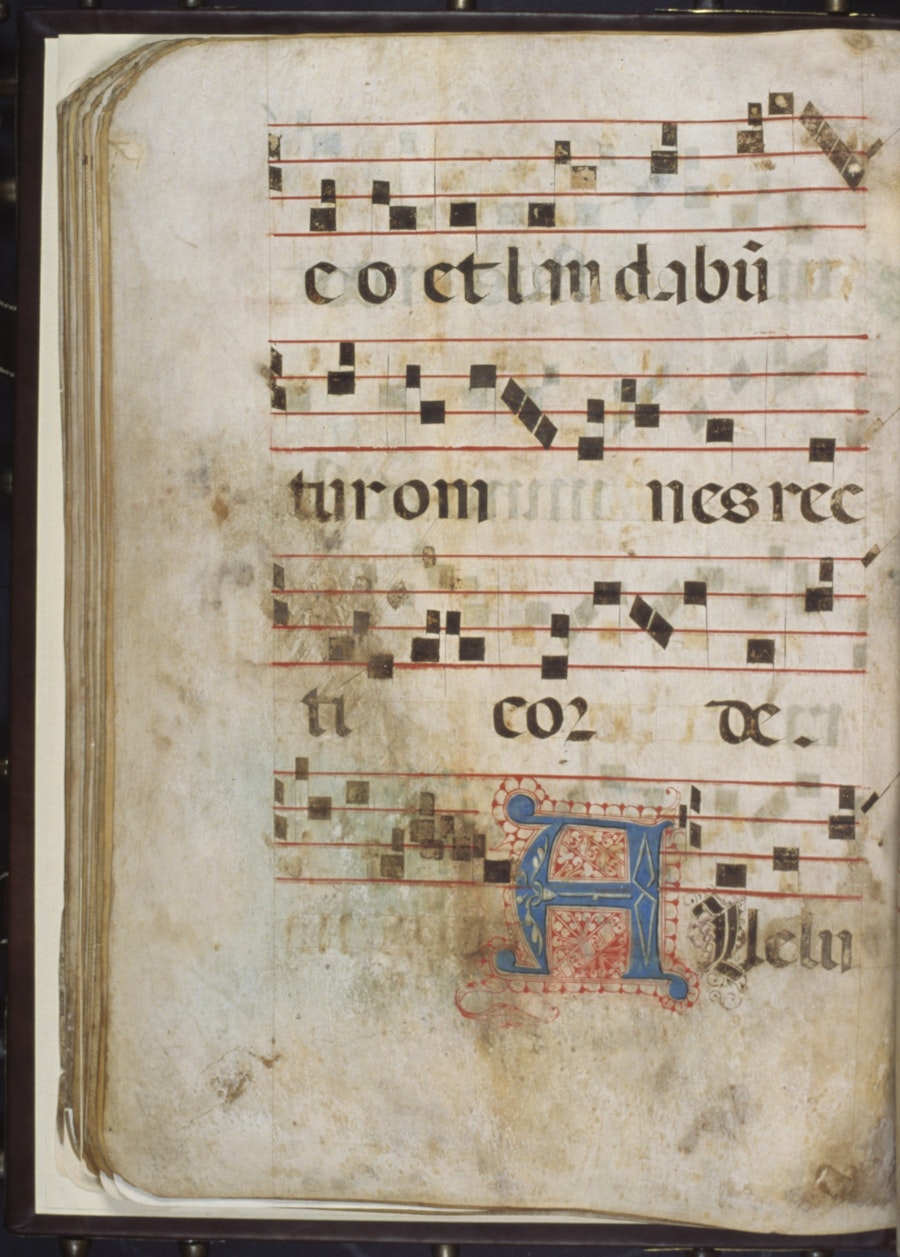 co et laudabū
tur om nes rec
ti cor de.
A Alelu